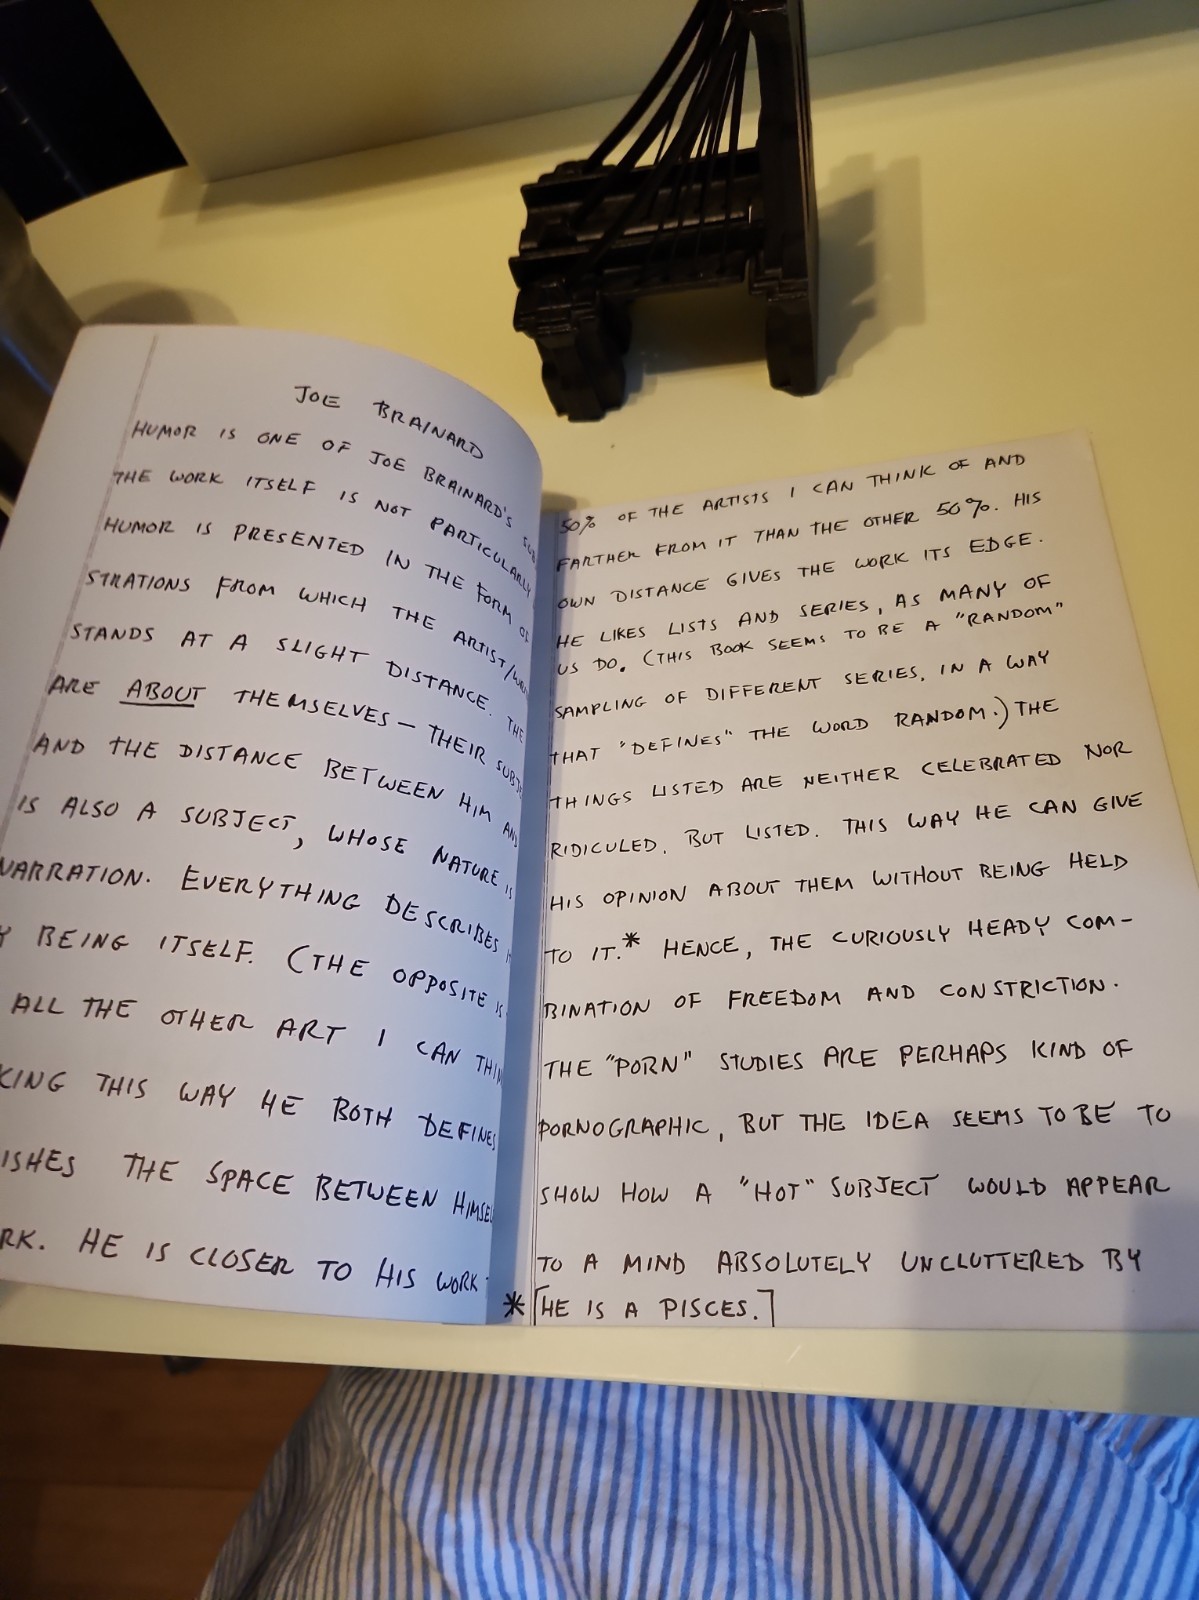 JOE BRAINARD
HUMOR IS ONE OF JOE BRAINARD'S
THE WORK ITSELF IS NOT PARTICULARLY
HUMOR IS PRESENTED IN THE FORM OF
STRATIONS FROM WHICH THE ARTIST/
STANDS AT A SLIGHT DISTANCE. THE
ARE ABOUT THEMSELVES — THEIR
AND THE DISTANCE BETWEEN HIM AND
IS ALSO A SUBJECT, WHOSE NATURE IS
NARRATION. EVERYTHING DESCRIBES
BEING ITSELF. (THE OPPOSITE IS
ALL THE OTHER ART I CAN
KING THIS WAY HE BOTH DEFINES
ISHES THE SPACE BETWEEN
RK. HE IS CLOSER TO HIS WORK
50% OF THE ARTISTS I CAN THINK OF AND
FARTHER FROM IT THAN THE OTHER 50%. HIS
OWN DISTANCE GIVES THE WORK ITS EDGE.
HE LIKES LISTS AND SERIES, AS MANY OF
US DO. (THIS BOOK SEEMS TO BE A "RANDOM"
SAMPLING OF DIFFERENT SERIES, IN A WAY
THAT "DEFINES" THE WORD RANDOM.) THE
THINGS LISTED ARE NEITHER CELEBRATED NOR
RIDICULED. BUT LISTED. THIS WAY HE CAN GIVE
HIS OPINION ABOUT THEM WITHOUT BEING HELD
TO IT.* HENCE, THE CURIOUSLY HEADY COM-
BINATION OF FREEDOM AND CONSTRICTION.
THE "PORN" STUDIES ARE PERHAPS KIND OF
PORNOGRAPHIC, BUT THE IDEA SEEMS TO BE TO
SHOW HOW A "HOT" SUBJECT WOULD APPEAR
TO A MIND ABSOLUTELY UNCLUTTERED BY
* [HE IS A PISCES.]